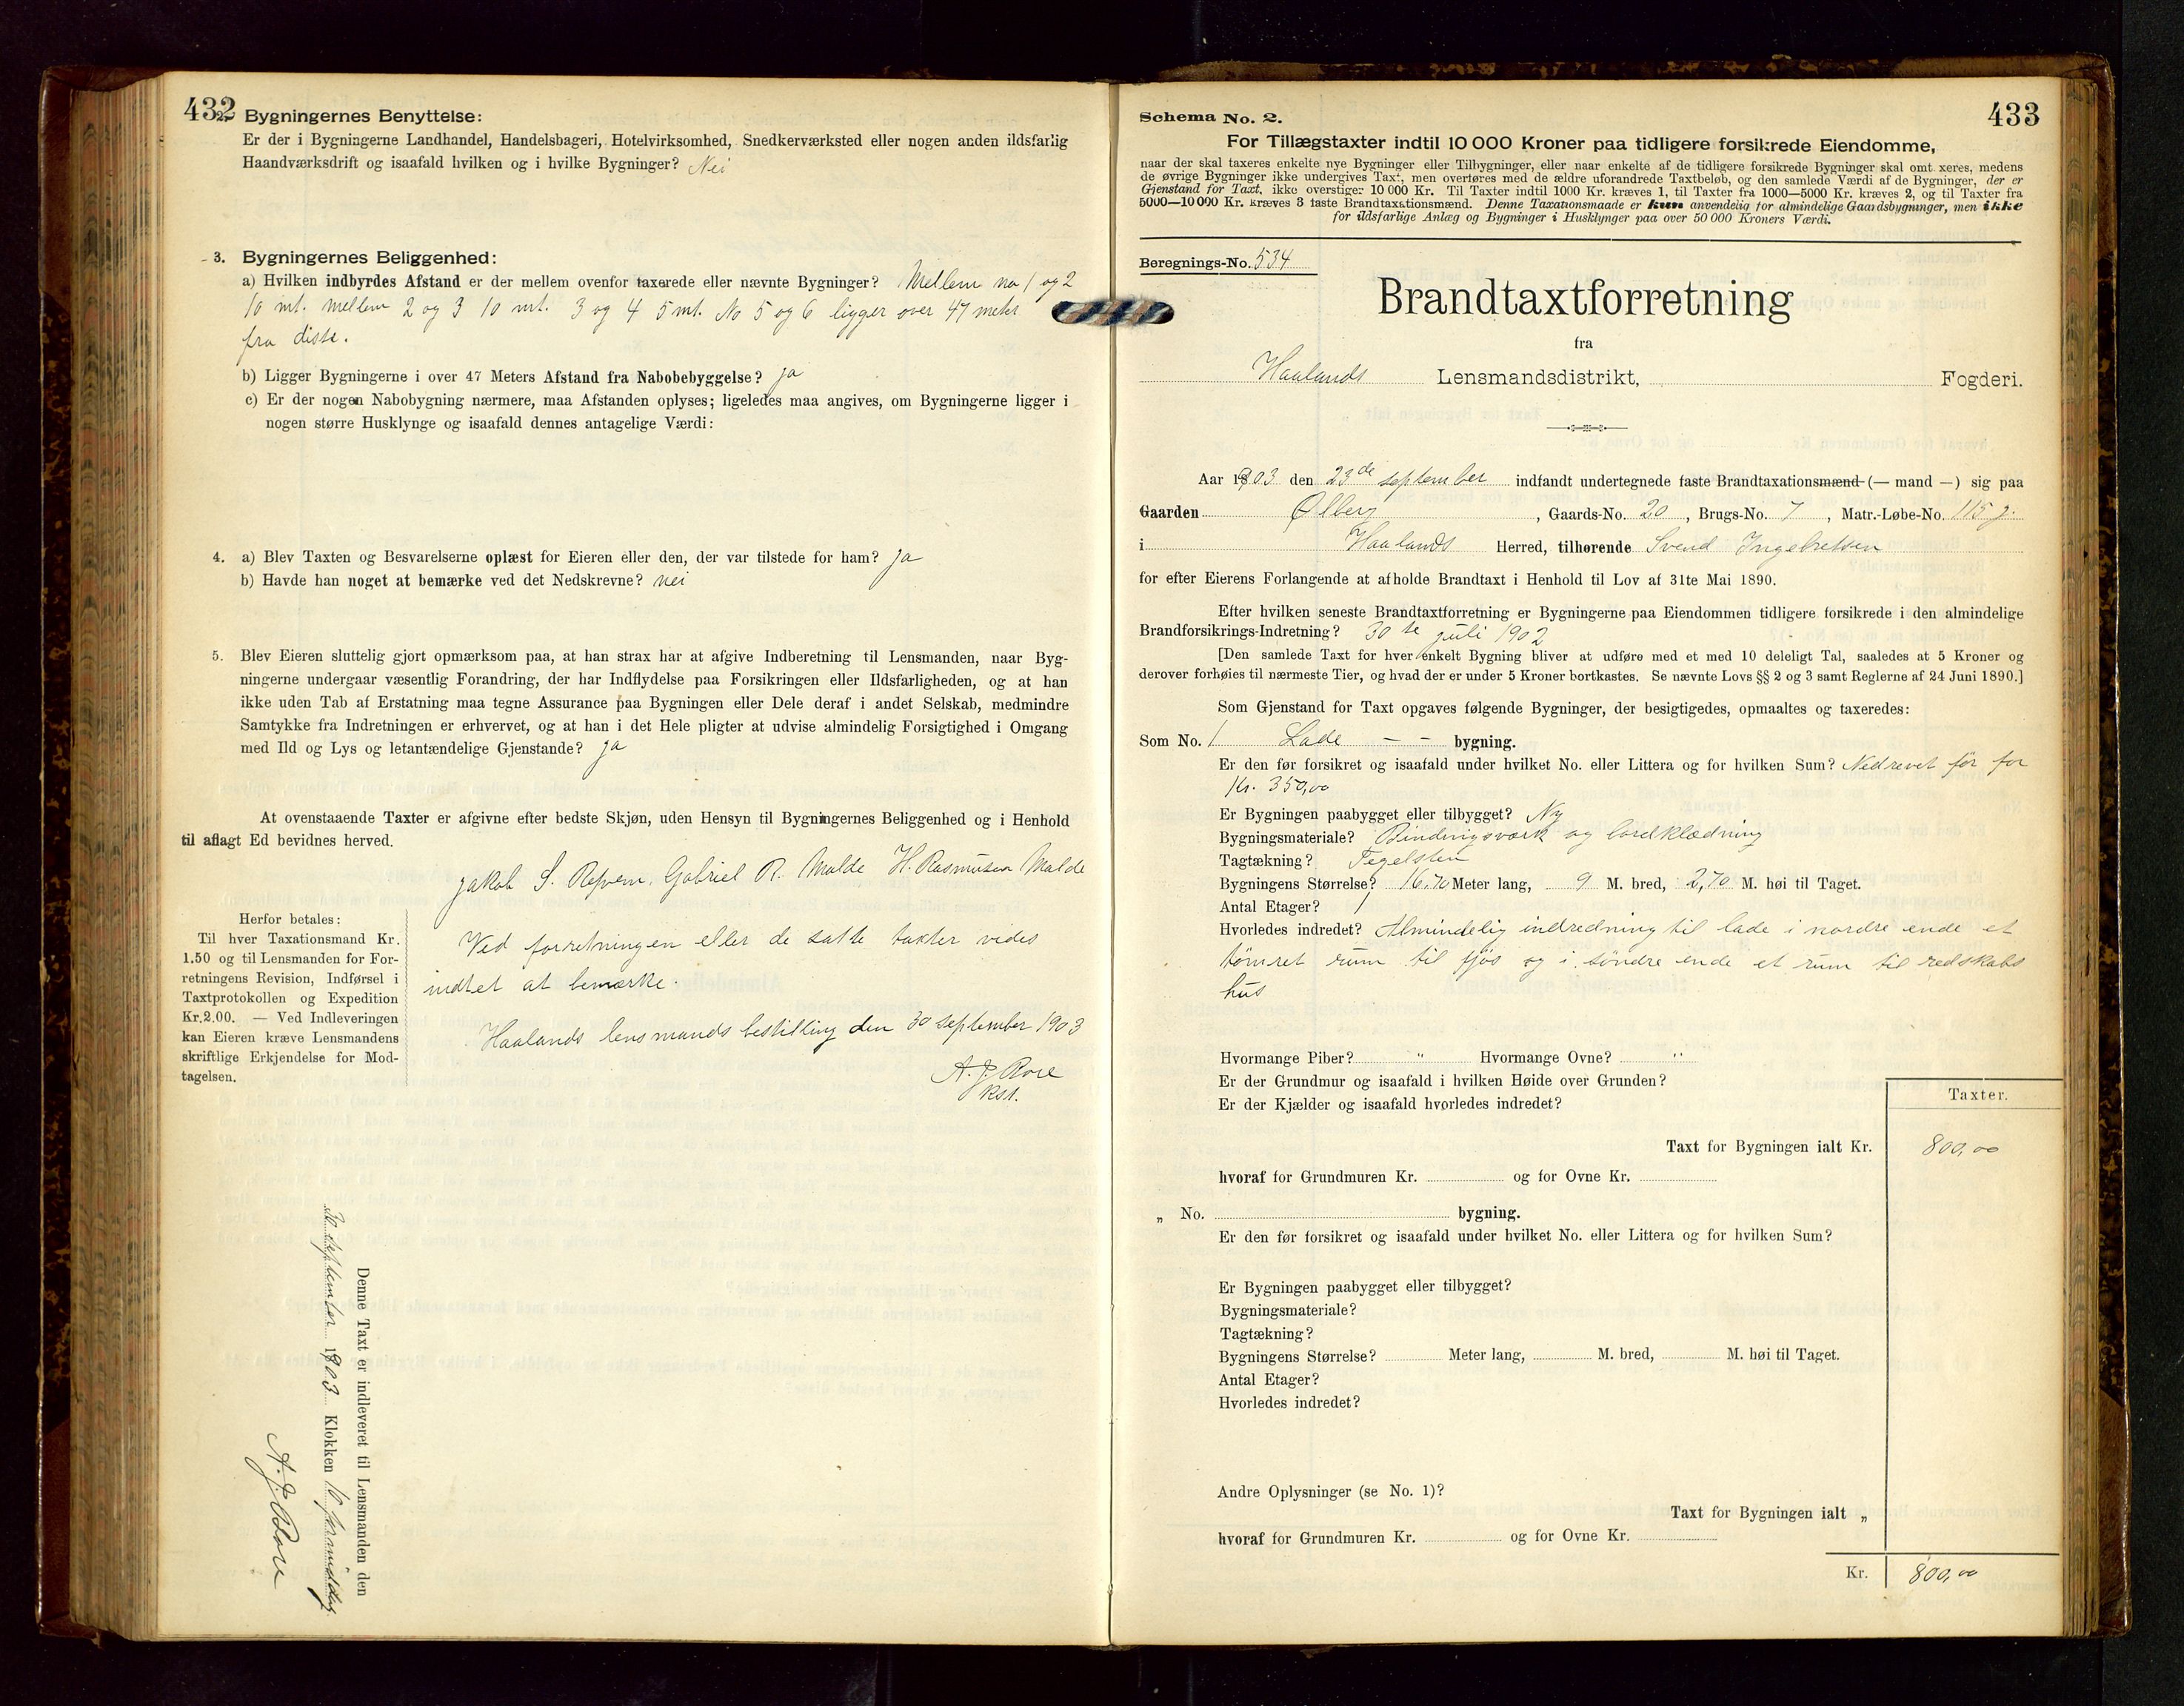 432
2. Bygningernes Benyttelse:
Er der i Bygningerne Landhandel, Handelsbageri, Hotelvirksomhed, Snedkerværksted eller nogen anden ildsfarlig
Haandværksdrift og isaafald hvilken og i hvilke Bygninger? Nei
3. Bygningernes Beliggenhed:
a) Hvilken indbyrdes Afstand er der mellem ovenfor taxerede eller nævnte Bygninger? Mellem no 1 og 2
10 mt. mellem 2 og 3 10 mt. 3 og 4 5 mt. No 5 og 6 ligger over 47 meter
fra disse.
b) Ligger Bygningerne i over 47 Meters Afstand fra Nabobebyggelse? ja
c) Er der nogen Nabobygning nærmere, maa Afstanden oplyses; ligeledes maa angives, om Bygningerne ligger i
nogen større Husklynge og isaafald dennes antagelige Værdi:
4. a) Blev Taxten og Besvarelserne oplæst for Eieren eller den, der var tilstede for ham? ja
b) Havde han noget at bemærke ved det Nedskrevne? nei
5. Blev Eieren sluttelig gjort opmærksom paa, at han strax har at afgive Indberetning til Lensmanden, naar Byg-
ningerne undergaar væsentlig Forandring, der har Indflydelse paa Forsikringen eller Ildsfarligheden, og at han
ikke uden Tab af Erstatning maa tegne Assurance paa Bygningen eller Dele deraf i andet Selskab, medmindre
Samtykke fra Indretningen er erhvervet, og at han i det Hele pligter at udvise almindelig Forsigtighed i Omgang
med Ild og Lys og letantændelige Gjenstande? ja
At ovenstaaende Taxter er afgivne efter bedste Skjøn, uden Hensyn til Bygningernes Beliggenhed og i Henhold
til aflagt Ed bevidnes herved.
Jakob S. Gabriel R. Malde H. Rasmusen Malde
Herfor betales:
Til hver Taxationsmand Kr.
1.50 og til Lensmanden for For-
retningens Revision, Indførsel i
Taxtprotokollen og Expedition
Kr.2.00. — Ved Indleveringen
kan Eieren kræve Lensmandens
skriftlige Erkjendelse for Mod-
tagelsen.
Ved forretningen eller de satte takter vides
indtet at bemærke.
Haalands lensmands bestilling den 30 september 1903
A. J. Rose
Kst.
Denne Taxt er indleveret til Lensmanden den
30 september 1903 Klokken 10 formiddag
A. J. Rose
433
Schema No. 2.
For Tillægstaxter indtil 10 000 Kroner paa tidligere forsikrede Eiendomme,
naar der skal taxeres enkelte nye Bygninger eller Tilbygninger, eller naar enkelte af de tidligere forsikrede Bygninger skal omt xeres, medens
de øvrige Bygninger ikke undergives Taxt, men overføres med de ældre uforandrede Taxtbeløb, og den samlede Værdi af de Bygninger, der er
Gjenstand for Taxt, ikke overstiger 10 000 Kr. Til Taxter indtil 1000 Kr. kræves 1, til Taxter fra 1000—5000 Kr. kræves 2, og til Taxter fra
5000—10 000 Kr. kræves 3 faste Brandtaxationsmænd. Denne Taxationsmaade er kun anvendelig for almindelige Gaardsbygninger, men ikke
for ildsfarlige Anlæg og Bygninger i Husklynger paa over 50 000 Kroners Værdi.
Beregnings-No. 534
Brandtaxtforretning
fra
Haalands Lensmandsdistrikt, Fogderi.
Aar 1903 den 23de september indfandt undertegnede faste Brandtaxationsmænd (— mand —) sig paa
Gaarden Ølberg, Gaards-No. 20, Brugs-No. 7, Matr.-Løbe-No. 115 g.
i Haalands Herred, tilhørende Svend Ingebretsen
for efter Eierens Forlangende at afholde Brandtaxt i Henhold til Lov af 31te Mai 1890.
Efter hvilken seneste Brandtaxtforretning er Bygningerne paa Eiendommen tidligere forsikrede i den almindelige
Brandforsikrings-Indretning? 30te juli 1902
[Den samlede Taxt for hver enkelt Bygning bliver at udføre med et med 10 deleligt Tal, saaledes at 5 Kroner og
derover forhøies til nærmeste Tier, og hvad der er under 5 Kroner bortkastes. Se nævnte Lovs §§ 2 og 3 samt Reglerne af 24 Juni 1890.]
Som Gjenstand for Taxt opgaves følgende Bygninger, der besigtigedes, opmaaltes og taxeredes:
Som No. 1 Lade - - bygning.
Er den før forsikret og isaafald under hvilket No. eller Littera og for hvilken Sum? Nedrevet för for
Kr. 350,00
Er Bygningen paabygget eller tilbygget? Ny
Bygningsmateriale? Bindingsværk og bordklædning
Tagtækning? Tegelsten
Bygningens Størrelse? 16.70 Meter lang, 9 M. bred, 2,70 M. høi til Taget.
Antal Etager? 1
Hvorledes indredet? Almindelig indredning til lade i nordre ende et
tömret rum til fjös og i söndre ende et rum til redskabs
hus
Hvormange Piber? " Hvormange Ovne? "
Er der Grundmur og isaafald i hvilken Høide over Grunden?
Er der Kjælder og isaafald hvorledes indredet?
Taxter.
Taxt for Bygningen ialt Kr. 800,00
hvoraf for Grundmuren Kr. og for Ovne Kr.
„ No. bygning.
Er den før forsikret og isaafald under hvilket No. eller Littera og for hvilken Sum?
Er Bygningen paabygget eller tilbygget?
Bygningsmateriale?
Tagtækning?
Bygningens Størrelse? Meter lang, M. bred, M. høi til Taget.
Antal Etager?
Hvorledes indredet?
Andre Oplysninger (se No. 1)?
Taxt for Bygningen ialt „
hvoraf for Grundmuren Kr. og for Ovne Kr.
Kr. 800,00